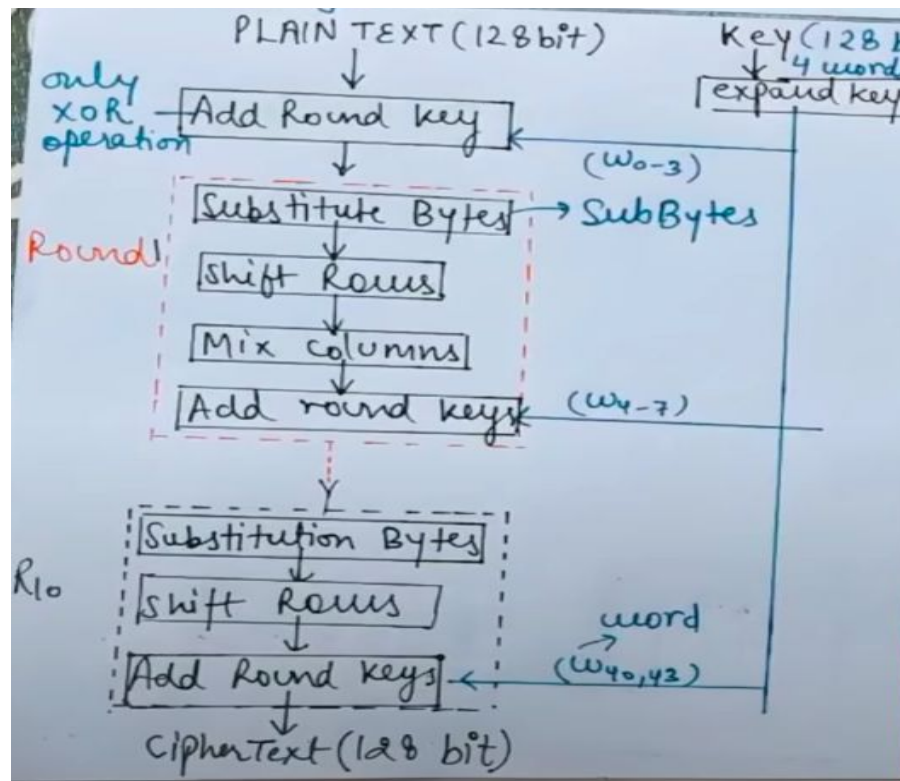 PLAIN TEXT (128 bit)
Key (128
4 word
expand key
only
XOR
operation
Add Round key
(W0-3)
Substitute Bytes
SubBytes
Round 1
Shift Rows
Mix columns
Add round keys
(W4-7)
Substitution Bytes
R10
Shift Rows
word
Add Round Keys
(W40,43)
CipherText (128 bit)